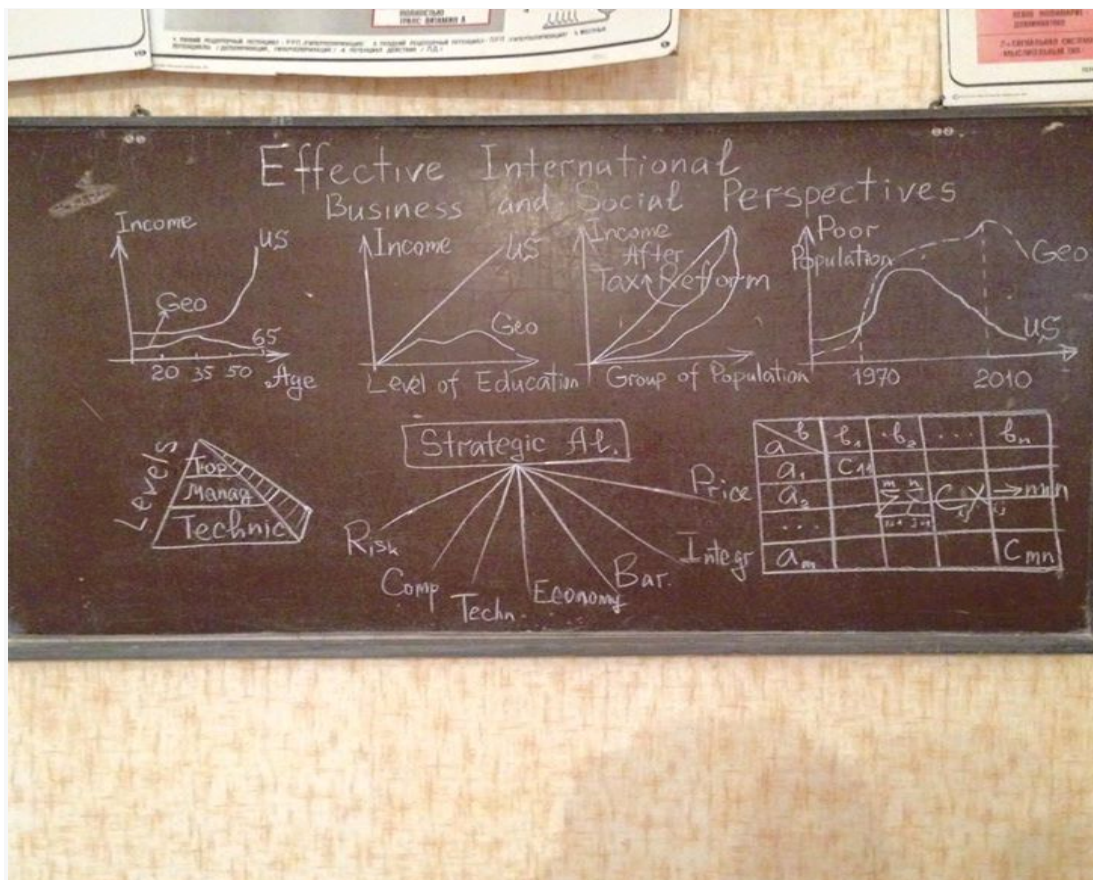 ПОЛНОСТЬЮ
ТРАНС ВИТАМИН А
Effective International
Business and Social Perspectives
Income
US
Geo
65
20 35 50 Age
Income
US
Geo
Level of Education
Income
After
Tax Reform
Group of Population
Poor
Population
Geo
US
1970 2010
Levels
Top
Manag
Technic
Strategic Al.
Risk
Comp
Techn.
Economy
Bar.
Integr
Price
a b b₁ b₂ ... bₙ
a₁ C₁₁
a₂ m n ΣΣ CᵢⱼXᵢⱼ → min
...
aₘ Cₘₙ